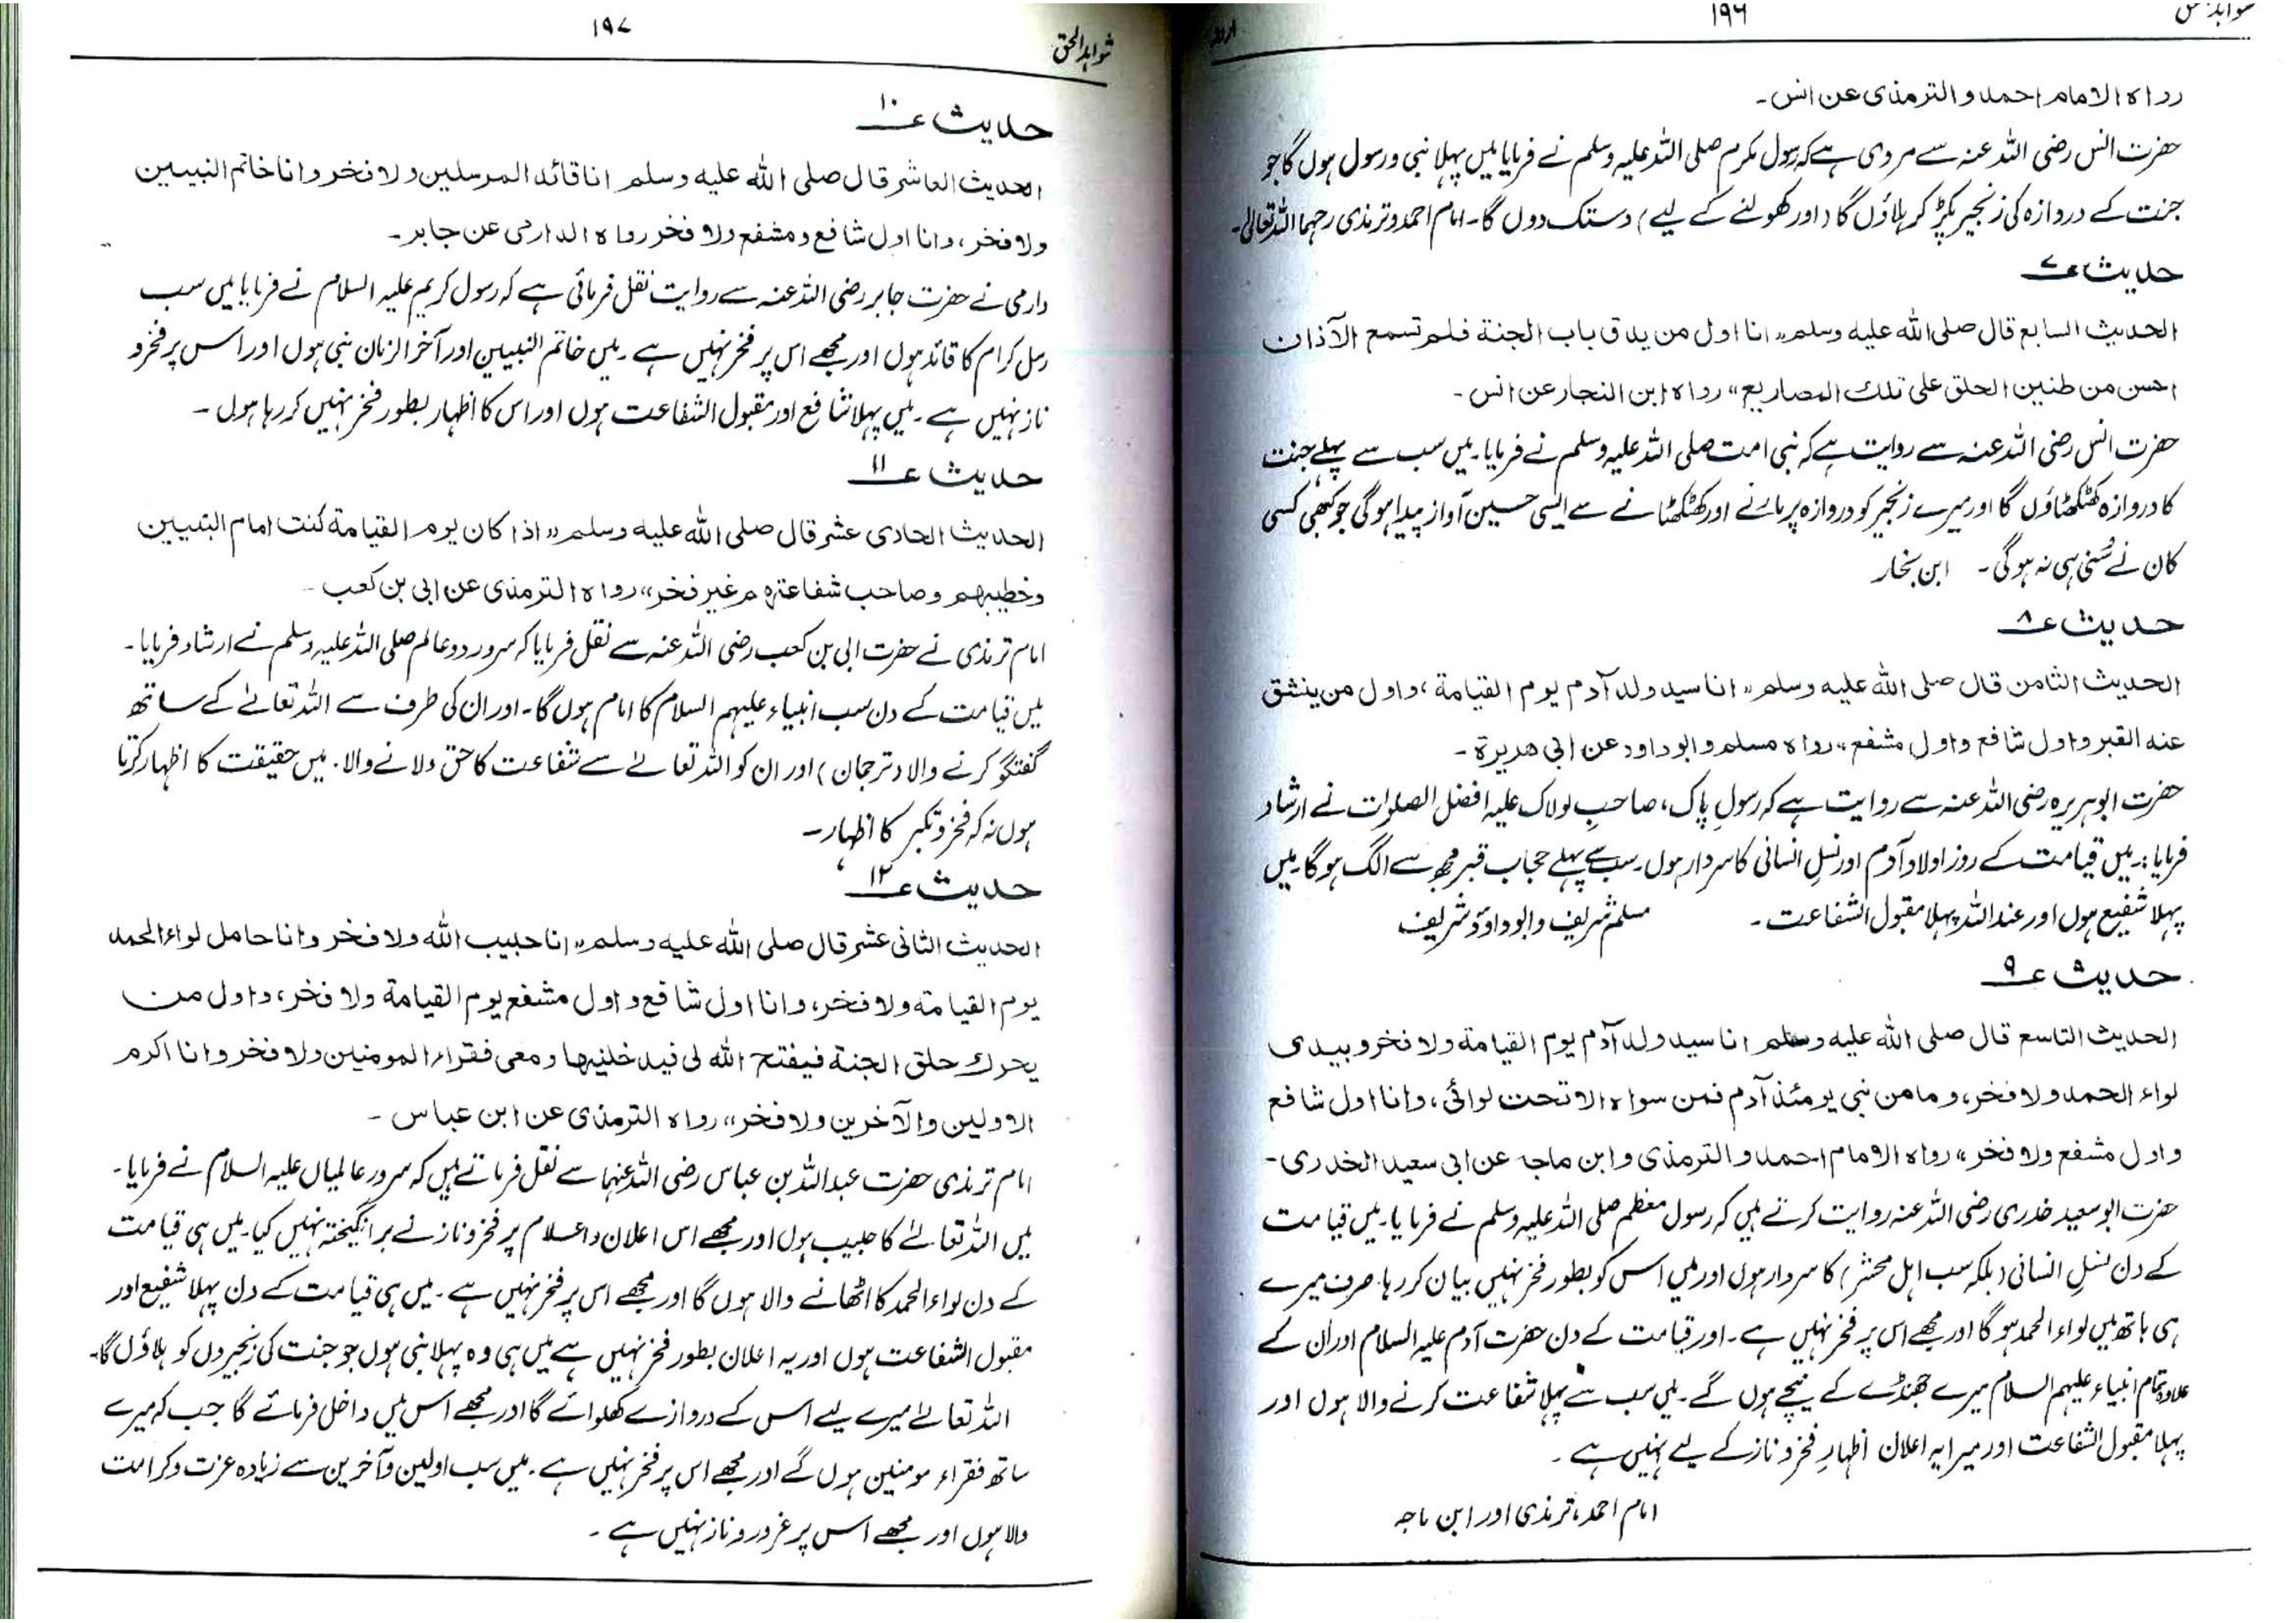 ۱۹۶
رواه الامام احمد والترمذی عن انس۔
حضرت انس رضی اللہ عنہ سے مروی ہے کہ رسول مکرم صلی اللہ علیہ وسلم نے فرمایا میں پہلا نبی ورسول ہوں گا جو
جنت کے دروازہ کی زنجیر پکڑ کر ہلاؤں گا (اور کھولنے کے لیے) دستک دوں گا۔ امام احمد وترمذی رحمہا اللہ تعالیٰ۔
حدیث ع۷
الحدیث السابع قال صلی الله علیه وسلم "انا اول من یدق باب الجنة فلم تسمع الآذان
احسن من طنین الحلق علی تلك المصاریع" رواه ابن النجار عن انس۔
حضرت انس رضی اللہ عنہ سے روایت ہے کہ نبی امت صلی اللہ علیہ وسلم نے فرمایا۔ میں سب سے پہلے جنت
کا دروازہ کھٹکھٹاؤں گا اور میرے زنجیر کو دروازہ پر مارنے اور کھٹکھٹانے سے ایسی حسین آواز پیدا ہوگی جو کبھی کسی
کان نے سُنی ہی نہ ہوگی۔ ابن نجار
حدیث ع۸
الحدیث الثامن قال صلی الله علیه وسلم "انا سید ولد آدم یوم القیامة، واول من ینشق
عنه القبر واول شافع واول مشفع" رواه مسلم وابوداود عن ابی هریرة۔
حضرت ابوہریرہ رضی اللہ عنہ سے روایت ہے کہ رسولِ پاک، صاحبِ لولاک علیہ افضل الصلوات نے ارشاد
فرمایا:۔ میں قیامت کے روز اولاد آدم اور نسلِ انسانی کا سردار ہوں۔ سب سے پہلے حجاب قبر مجھ سے الگ ہوگا۔ میں
پہلا شفیع ہوں اور عنداللہ پہلا مقبول الشفاعت۔ مسلم شریف وابوداؤد شریف
حدیث ع۹
الحدیث التاسع قال صلی الله علیه وسلم انا سید ولد آدم یوم القیامة ولا فخر و بیدی
لواء الحمد ولا فخر، وما من نبی یومئذ آدم فمن سواه الا تحت لوائی، وانا اول شافع
واول مشفع ولا فخر" رواه الامام احمد والترمذی وابن ماجه عن ابی سعید الخدری۔
حضرت ابوسعید خدری رضی اللہ عنہ روایت کرتے ہیں کہ رسول معظم صلی اللہ علیہ وسلم نے فرمایا۔ میں قیامت
کے دن نسلِ انسانی (بلکہ سب اہل محشر) کا سردار ہوں اور میں اس کو بطور فخر نہیں بیان کر رہا۔ صرف میرے
ہی ہاتھ میں لواء الحمد ہوگا اور مجھے اس پر فخر نہیں ہے۔ اور قیامت کے دن حضرت آدم علیہ السلام اور ان کے
علاوہ تمام انبیاء علیہم السلام میرے جھنڈے کے نیچے ہوں گے۔ میں سب سے پہلا شفاعت کرنے والا ہوں اور
پہلا مقبول الشفاعت اور میرا یہ اعلان اظہارِ فخر و ناز کے لیے نہیں ہے۔
امام احمد، ترمذی اور ابن ماجہ
شواہد الحق ۱۹۷
حدیث ع۱۰
الحدیث العاشر قال صلی الله علیه وسلم انا قائد المرسلین ولا فخر وانا خاتم النبیین
ولا فخر، وانا اول شافع ومشفع ولا فخر رواه الدارمی عن جابر۔
دارمی نے حضرت جابر رضی اللہ عنہ سے روایت نقل فرمائی ہے کہ رسول کریم علیہ السلام نے فرمایا میں سب
رسل کرام کا قائد ہوں اور مجھے اس پر فخر نہیں ہے۔ میں خاتم النبیین اور آخر الزمان نبی ہوں اور اس پر فخر و
ناز نہیں ہے۔ میں پہلا شافع اور مقبول الشفاعت ہوں اور اس کا اظہار بطور فخر نہیں کر رہا ہوں۔
حدیث ع۱۱
الحدیث الحادی عشر قال صلی الله علیه وسلم "اذا کان یوم القیامة کنت امام النبیین
وخطیبهم وصاحب شفاعتهم غیر فخر" رواه الترمذی عن ابی بن کعب۔
امام ترمذی نے حضرت ابی بن کعب رضی اللہ عنہ سے نقل فرمایا کہ سرور دو عالم صلی اللہ علیہ وسلم نے ارشاد فرمایا۔
میں قیامت کے دن سب انبیاء علیہم السلام کا امام ہوں گا۔ اور ان کی طرف سے اللہ تعالےٰ کے ساتھ
گفتگو کرنے والا (ترجمان) اور ان کو اللہ تعالےٰ سے شفاعت کا حق دلانے والا۔ میں حقیقت کا اظہار کرتا
ہوں نہ کہ فخر و تکبر کا اظہار۔
حدیث ع۱۲
الحدیث الثانی عشر قال صلی الله علیه وسلم "انا حبیب الله ولا فخر وانا حامل لواء الحمد
یوم القیامة ولا فخر، وانا اول شافع واول مشفع یوم القیامة ولا فخر، واول من
یحرك حلق الجنة فیفتح الله لی فیدخلنیها ومعی فقراء المومنین ولا فخر وانا اکرم
الاولین والآخرین ولا فخر" رواه الترمذی عن ابن عباس۔
امام ترمذی حضرت عبداللہ بن عباس رضی اللہ عنہما سے نقل فرماتے ہیں کہ سرور عالمیاں علیہ السلام نے فرمایا۔
میں اللہ تعالےٰ کا حبیب ہوں اور مجھے اس اعلان و اعلام پر فخر و ناز نے برانگیختہ نہیں کیا۔ میں ہی قیامت
کے دن لواء الحمد کا اٹھانے والا ہوں گا اور مجھے اس پر فخر نہیں ہے۔ میں ہی قیامت کے دن پہلا شفیع اور
مقبول الشفاعت ہوں اور یہ اعلان بطور فخر نہیں ہے میں ہی وہ پہلا نبی ہوں جو جنت کی زنجیروں کو ہلاؤں گا۔
اللہ تعالےٰ میرے لیے اس کے دروازے کھلوائے گا اور مجھے اس میں داخل فرمائے گا جب کہ میرے
ساتھ فقراء مومنین ہوں گے اور مجھے اس پر فخر نہیں ہے۔ میں سب اولین و آخرین سے زیادہ عزت و کرامت
والا ہوں اور مجھے اس پر غرور و ناز نہیں ہے۔